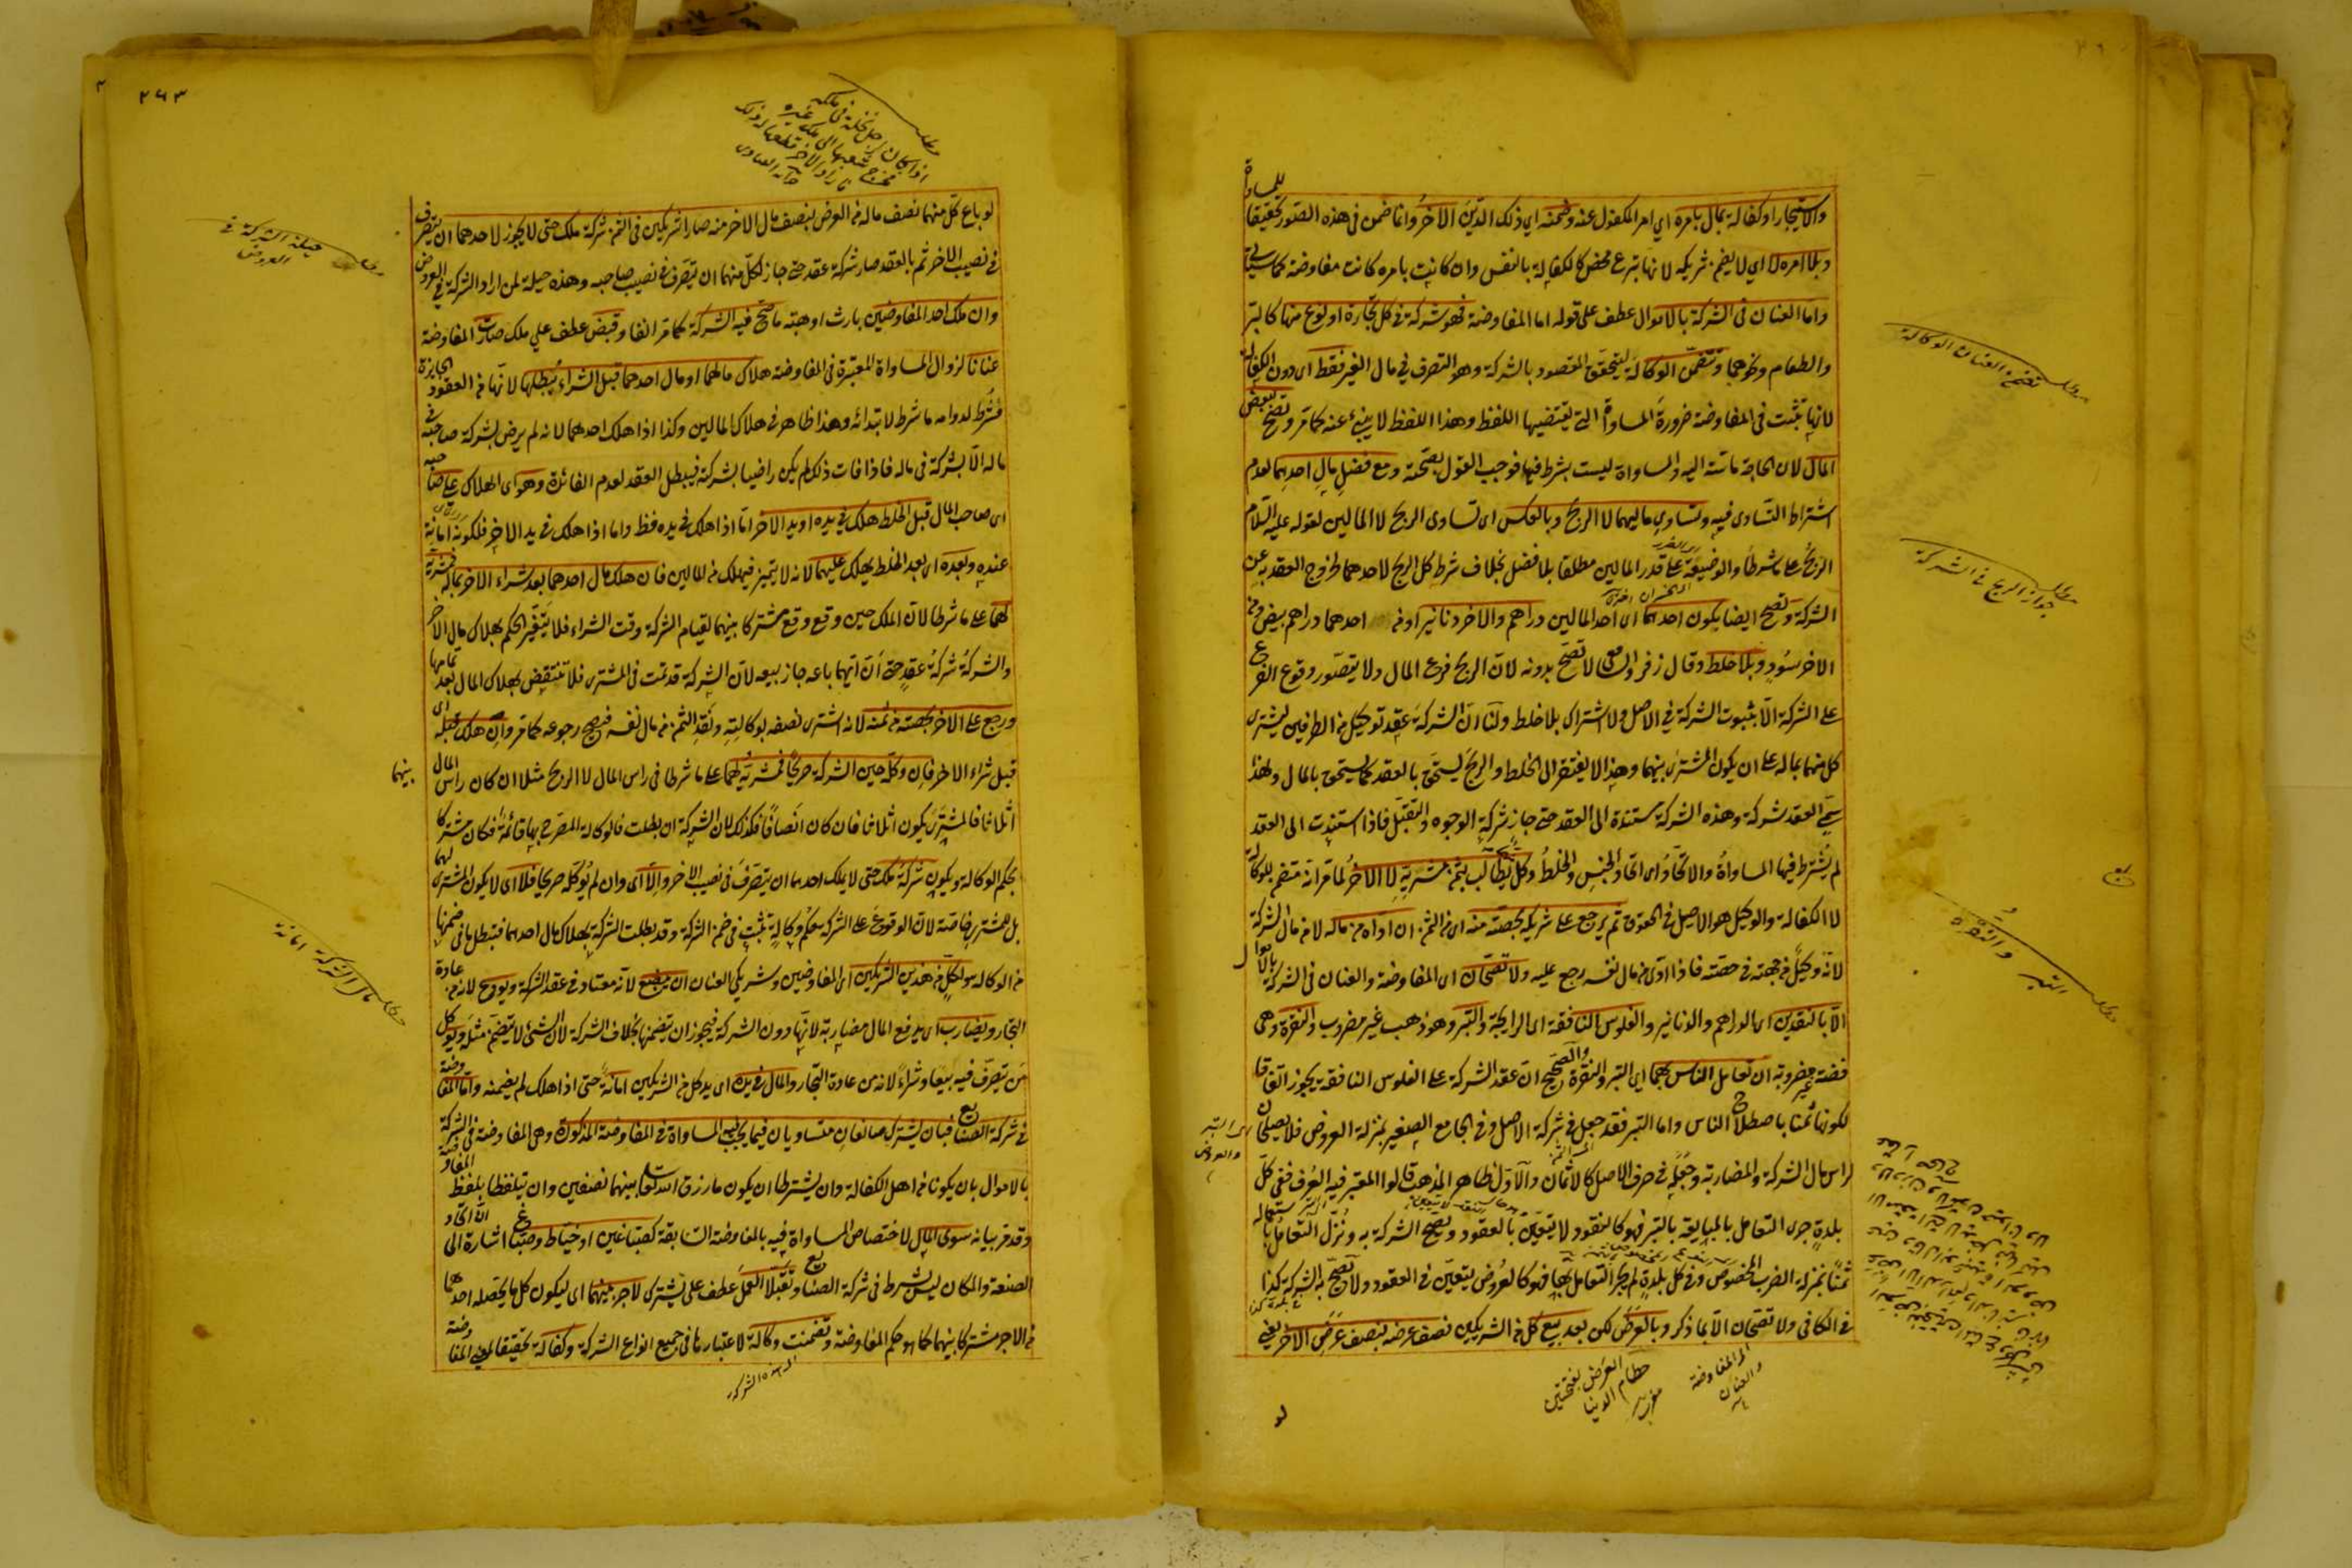 والاستيجار او كفالة بمال بامره اي امر المكفول عنه وضمنه اي ذلك الدين الآخر وانما ضمن في هذه الصور تحقيقا للمساواة
وبلا امره لا اي لا يضمن شريكه لانها تبرع محض كالكفالة بالنفس وان كانت بامره كانت مفاوضة كما سيأتي
واما العنان في الشركة بالاموال عطف على قوله اما المفاوضة فهو شركة في كل تجارة او نوع منها كالبر
والطعام ونحوهما وتتضمن الوكالة ليتحقق المقصود بالشركة وهو التصرف في مال الغير فقط اى دون الكفالة
لانها تثبت في المفاوضة ضرورة المساواة التي يقتضيها اللفظ وهذا اللفظ لا ينبئ عنه كما مر وتصح ببعض
المال لان الحاجة ماسة اليه والمساواة ليست بشرط فيها فوجب القول بصحته ومع فضل مال احدهما لعدم
اشتراط التساوى فيه وتساوي ماليهما لا الربح وبالعكس اى تساوى الربح لا المالين لقوله عليه السلام
الربح على ما شرطا والوضيعة على قدر المالين مطلقا بلا فضل بخلاف شرط كل الربح لاحدهما لخروج العقد به عن
الشركة وتصح ايضا بكون احدهما اى احد المالين دراهم والآخر دنانير او من احدهما دراهم بيض ومن
الآخر سود وبلا خلط وقال زفر والشافعي لا تصح بدونه لان الربح فرع المال ولا يتصور وقوع الفرع
على الشركة الا بثبوت الشركة في الاصل ولا اشتراك بلا خلط ولنا ان الشركة عقد توكيل من الطرفين ليشترى
كل منهما بماله على ان يكون المشترى بينهما وهذا لا يفتقر الى الخلط والربح يستحق بالعقد كما يستحق بالمال ولهذا
سمي العقد شركة وهذه الشركة مستندة الى العقد حتى جاز شركة الوجوه والتقبل فاذا استندت الى العقد
لم يشترط فيها المساواة والاتحاد اى اتحاد الجنس والخلط وكل يطالب بثمن مشريه لا الآخر لما مر انه متضمن للوكالة
لا الكفالة والوكيل هو الاصيل في الحقوق ثم يرجع على شريكه بحصته منه اى من الثمن ان اداه من ماله لا من مال الشركة
لانه وكيل من جهته في حصته فاذا ادى من مال نفسه رجع عليه ولا تصحان اى المفاوضة والعنان في الشركة بالاموال
الا بالنقدين اى الدراهم والدنانير والفلوس النافقة اى الرايجة والتبر وهو ذهب غير مضروب والنقرة وهى
فضة غير مضروبة ان تعامل الناس بهما اى التبر والنقرة والصحيح ان عقد الشركة على الفلوس النافقة يجوز اتفاقا
لكونها ثمنا باصطلاح الناس واما التبر فقد جعل في شركة الاصل وفى الجامع الصغير بمنزلة العروض فلا يصلحان
لراس مال الشركة والمضاربة وجعله في صرف الاصل كالاثمان والاول ظاهر المذهب قالوا المعتبر فيه العرف ففى كل
بلدة جرى التعامل بالمبايعة بالتبر فهو كالنقود لا يتعين بالعقود وتصح الشركة به ونزل التعامل باستعماله
ثمنا بمنزلة الضرب المخصوص وفى كل بلدة لم يجر التعامل بها فهو كالعروض يتعين في العقود ولا تصح به الشركة كذا
في الكافى ولا تصحان الا بما ذكر وبالعرض لكن بعد بيع كل من الشريكين نصف عرضه بنصف عرض الآخر يعني
مطلب تضمن العنان الوكالة
مطلب جواز الربح في الشركة
مطلب التبر والنقرة
اى التبر والعروض
اى المفاوضة والعنان
العرض بفتحتين حطام الدنيا
لو
٢٦٣
لو باع كل منهما نصف ماله من العرض بنصف مال الآخر منه صارا شريكين في الثمن شركة ملك حتى لا يجوز لاحدهما ان يتصرف
في نصيب الآخر ثم بالعقد صار شركة عقد حتى جاز لكل منهما ان يتصرف في نصيب صاحبه وهذه حيلة لمن اراد الشركة في العروض
وان ملك احد المفاوضين بارث او هبة ما تصح فيه الشركة كما مر انفا وقبض عطف على ملك صارت المفاوضة
عنانا لزوال المساواة المعتبرة في المفاوضة هلاك مالهما او مال احدهما قبل الشراء يبطلها لانها من العقود الجايزة
فشرط لدوامه ما شرط لابتدائه وهذا ظاهر في هلاك المالين وكذا اذا هلك احدهما لانه لم يرض بشركة صاحبه في
ماله الا بشركته في ماله فاذا فات ذلك لم يكن راضيا بشركته فيبطل العقد لعدم الفائدة وهو اى الهلاك على صاحبه
اى صاحب المال قبل الخلط هلك في يده او يد الآخر اما اذا هلك في يده فظ واما اذا هلك في يد الآخر فلكونه امانة
عنده وبعده اى بعد الخلط يهلك عليهما لانه لا يتميز فيهلك من المالين فان هلك مال احدهما بعد شراء الآخر بماله فمشريه
لهما على ما شرطا لان الملك حين وقع وقع مشتركا بينهما لقيام الشركة وقت الشراء فلا يتغير الحكم بهلاك مال الآخر
والشركة شركة عقد حتى ان ايهما باعه جاز بيعه لان الشركة قد تمت في المشترى فلا ينتقض بهلاك المال بعد تمامها
ورجع على الآخر بحصته من ثمنه لانه اشترى نصفه بوكالته ونقد الثمن من مال نفسه فيصح رجوعه كما مر وان هلك قبله اى
قبل شراء الآخر فان وكله حين الشركة صريحا فمشريه لهما على ما شرطا في راس المال لا الربح مثلا ان كان راس المال بينهما
اثلاثا فالمشترى يكون اثلاثا فان كان انصافا فكذلك لان الشركة ان بطلت فالوكالة المصرح بها قائمة فكان مشتركا
بحكم الوكالة ويكون شركة ملك حتى لا يملك احدهما ان يتصرف في نصيب الآخر والا اى وان لم يوكله صريحا فلا اى لا يكون المشترى لهما
بل للمشترى خاصة لان الوقوع على الشركة بحكم وكالة تثبت في ضمن الشركة وقد بطلت الشركة بهلاك مال احدهما فيبطل ما في ضمنها
من الوكالة ولكل من هذين الشريكين اى المفاوضين وشريكي العنان ان يبضع لانه معتاد في عقد الشركة ويودع لانه من عادة
التجار ويضارب اى يدفع المال مضاربة لانها دون الشركة فيجوز ان تتضمنها بخلاف الشركة لان الشئ لا يتضمن مثله ويوكل
من يتصرف فيه بيعا وشراء لانه من عادة التجار والمال في يده اى يد كل من الشريكين امانة حتى اذا هلك لم يضمنه واما المفاوضة
في شركة الصنايع فبان يشترك صانعان متساويان فيما يجب فيه المساواة في المفاوضة المذكورة وهى المفاوضة في الشركة
بالاموال بان يكونا من اهل الكفالة وان يشترطا ان يكون ما رزق الله تعالى بينهما نصفين وان يتلفظا بلفظ المفاوضة
وقد مر بيانه سوى المال لاختصاص المساواة فيه بالمفاوضة السابقة كصباغين او خياط وصباغ اشارة الى ان اتحاد
الصنعة والمكان ليس بشرط في شركة الصنايع وتقبلا العمل عطف على يشترك لاجر بينهما اى ليكون كل ما يحصله احدهما
من الاجر مشتركا بينهما كما هو حكم المفاوضة وتضمنت وكالة لاعتبارها في جميع انواع الشركة وكفالة تحقيقا لمعنى المفاوضة
مطلب حيلة الشركة في العروض
مطلب مال الشركة امانة
اى هذه الشركة